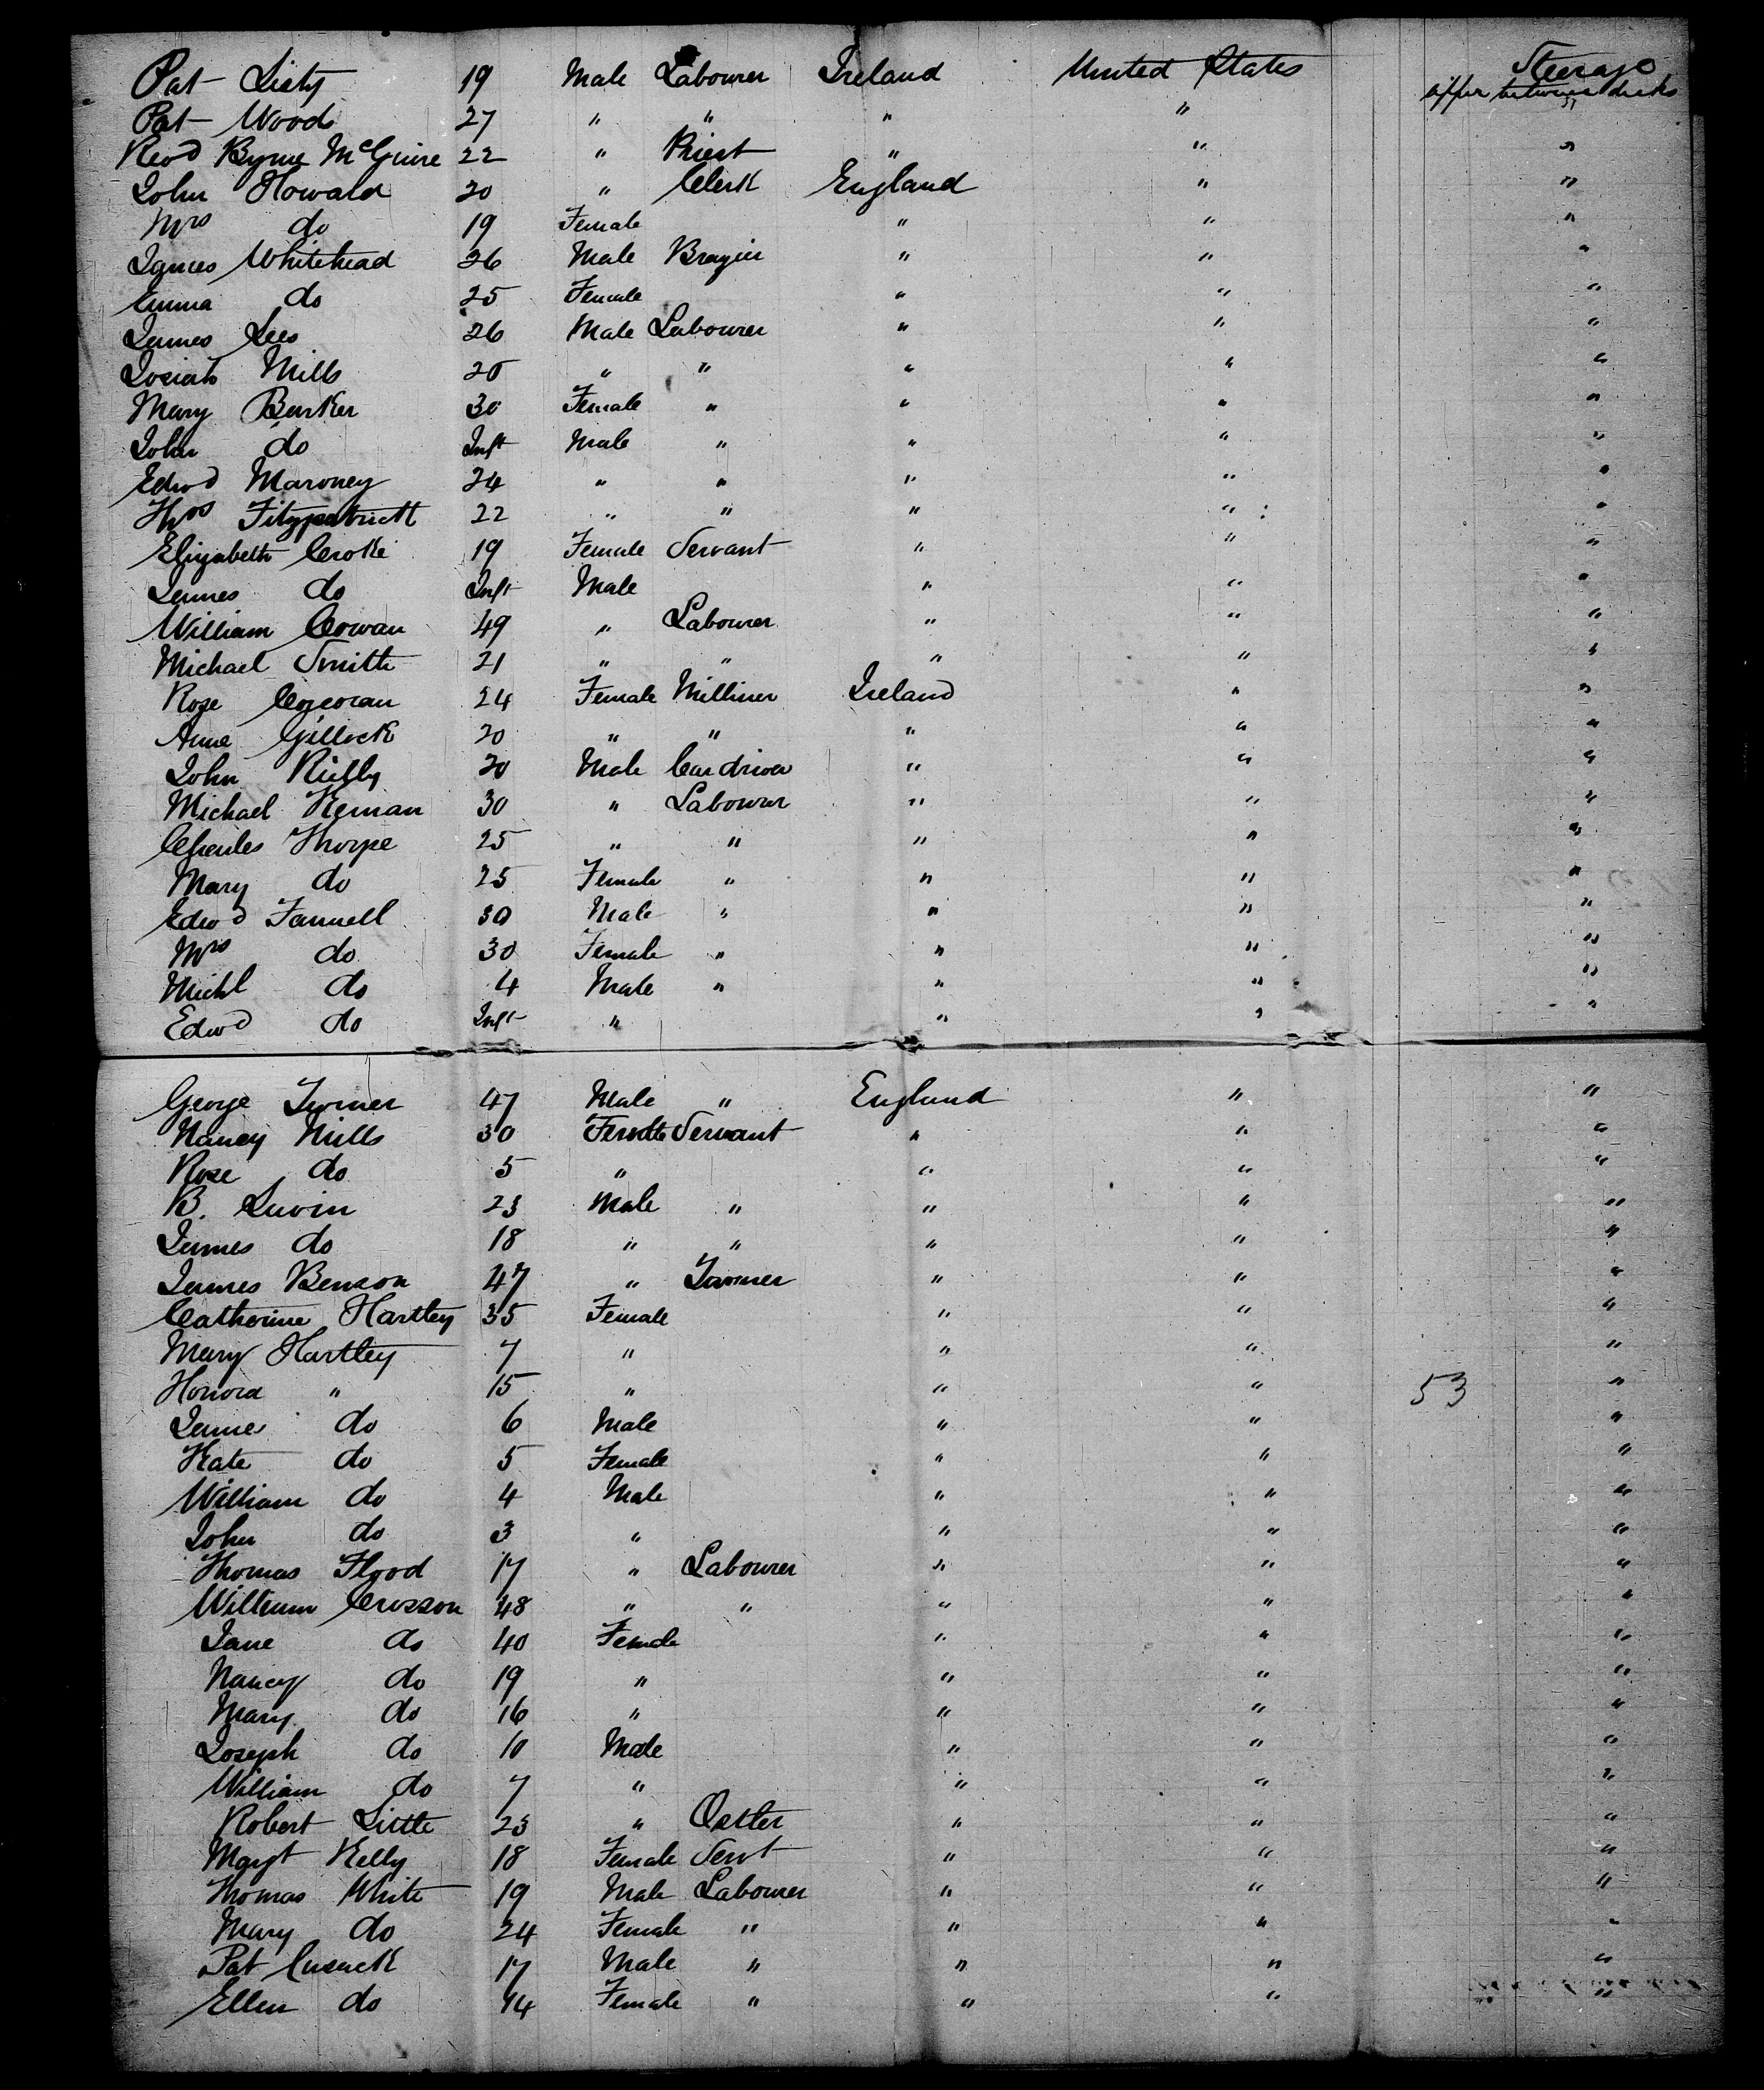 Pat 19 Male Labourer Ireland United States Steerage
upper between decks
Pat Woods 27 " " " " "
Revd Byrne McGuire 22 " Priest " " "
John Howald 20 " Clerk England " "
Mrs do 19 Female " " "
James Whitehead 26 Male Brazier " " "
Emma do 25 Female " " "
James Lees 26 Male Labourer " " "
Josiah Mills 20 " " " " "
Mary Barker 30 Female " " " "
John do Inft Male " " " "
Edwd Maroney 24 " " " " "
Thos Fitzpatrick 22 " " " " "
Elizabeth Croke 19 Female Servant " " "
James do Inft Male " " "
William Cowan 49 " Labourer " " "
Michael Smith 21 " " " " "
Rose Corcoran 24 Female Milliner Ireland " "
Anne Gillick 20 " " " " "
John Rielly 20 Male Car driver " " "
Michael Keman 30 " Labourer " " "
Charles Thorpe 25 " " " " "
Mary do 25 Female " " " "
Edwd Fannell 30 Male " " " "
Mrs do 30 Female " " " "
Michl do 4 Male " " " "
Edwd do Inft " " " "
George Turner 47 Male " England " "
Nancy Mills 30 Female Servant " " "
Rose do 5 " " " "
B. 23 Male " " " "
James do 18 " " " " "
James Benson 47 " " " "
Catherine Hartley 35 Female " " "
Mary Hartley 7 " " " "
Honora " 15 " " " 53 "
James do 6 Male " " "
Kate do 5 Female " " "
William do 4 Male " " "
John do 3 " " " "
Thomas Flood 17 " Labourer " " "
William Crosson 48 " " " " "
Jane do 40 Female " " "
Nancy do 19 " " " "
Mary do 16 " " " "
Joseph do 10 Male " " "
William do 7 " " " "
Robert Little 23 " Ostler " " "
Margt Kelly 18 Female Servt " " "
Thomas White 19 Male Labourer " " "
Mary do 24 Female " " " "
Pat Cusack 17 Male " " " "
Ellen do 14 Female " " " "